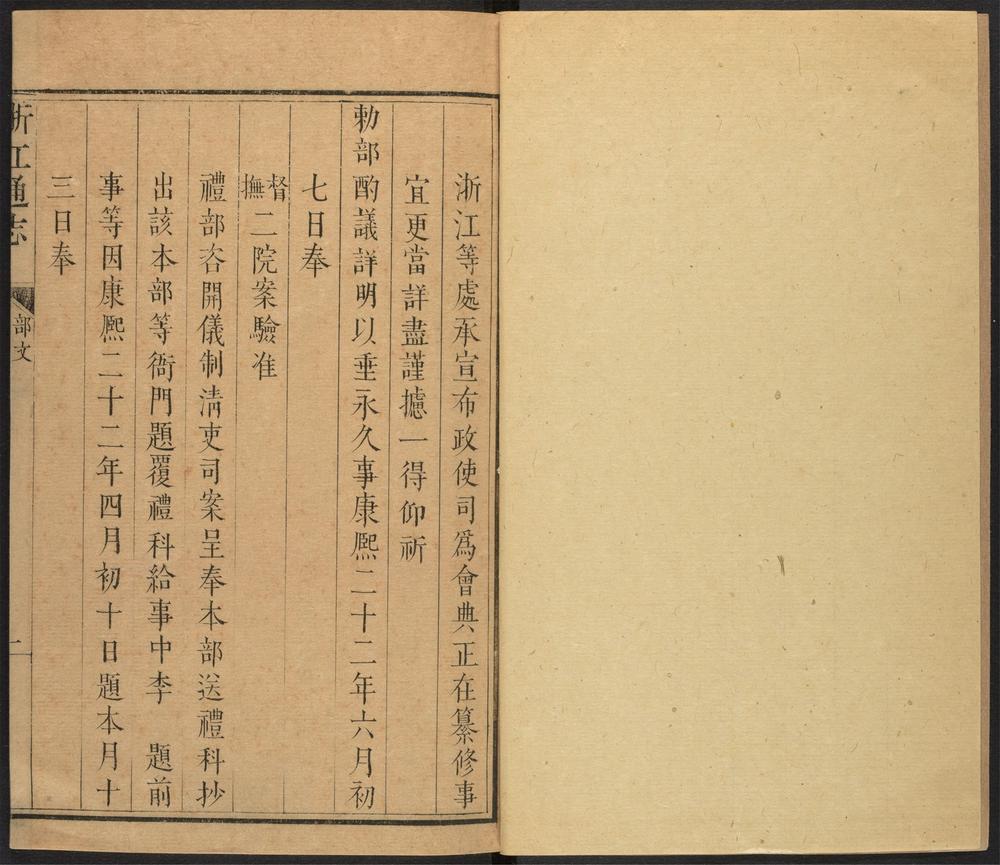 浙江等處承宣布政使司爲會典正在纂修事
宜更當詳盡謹攄一得仰祈
勅部酌議詳明以垂永久事康熈二十二年六月初
七日奉
督撫二院案驗准
禮部咨開儀制淸吏司案呈奉本部送禮科抄
出該本部等衙門題覆禮科給事中李　題前
事等因康熈二十二年四月初十日題本月十
三日奉
浙江通志
部文
一